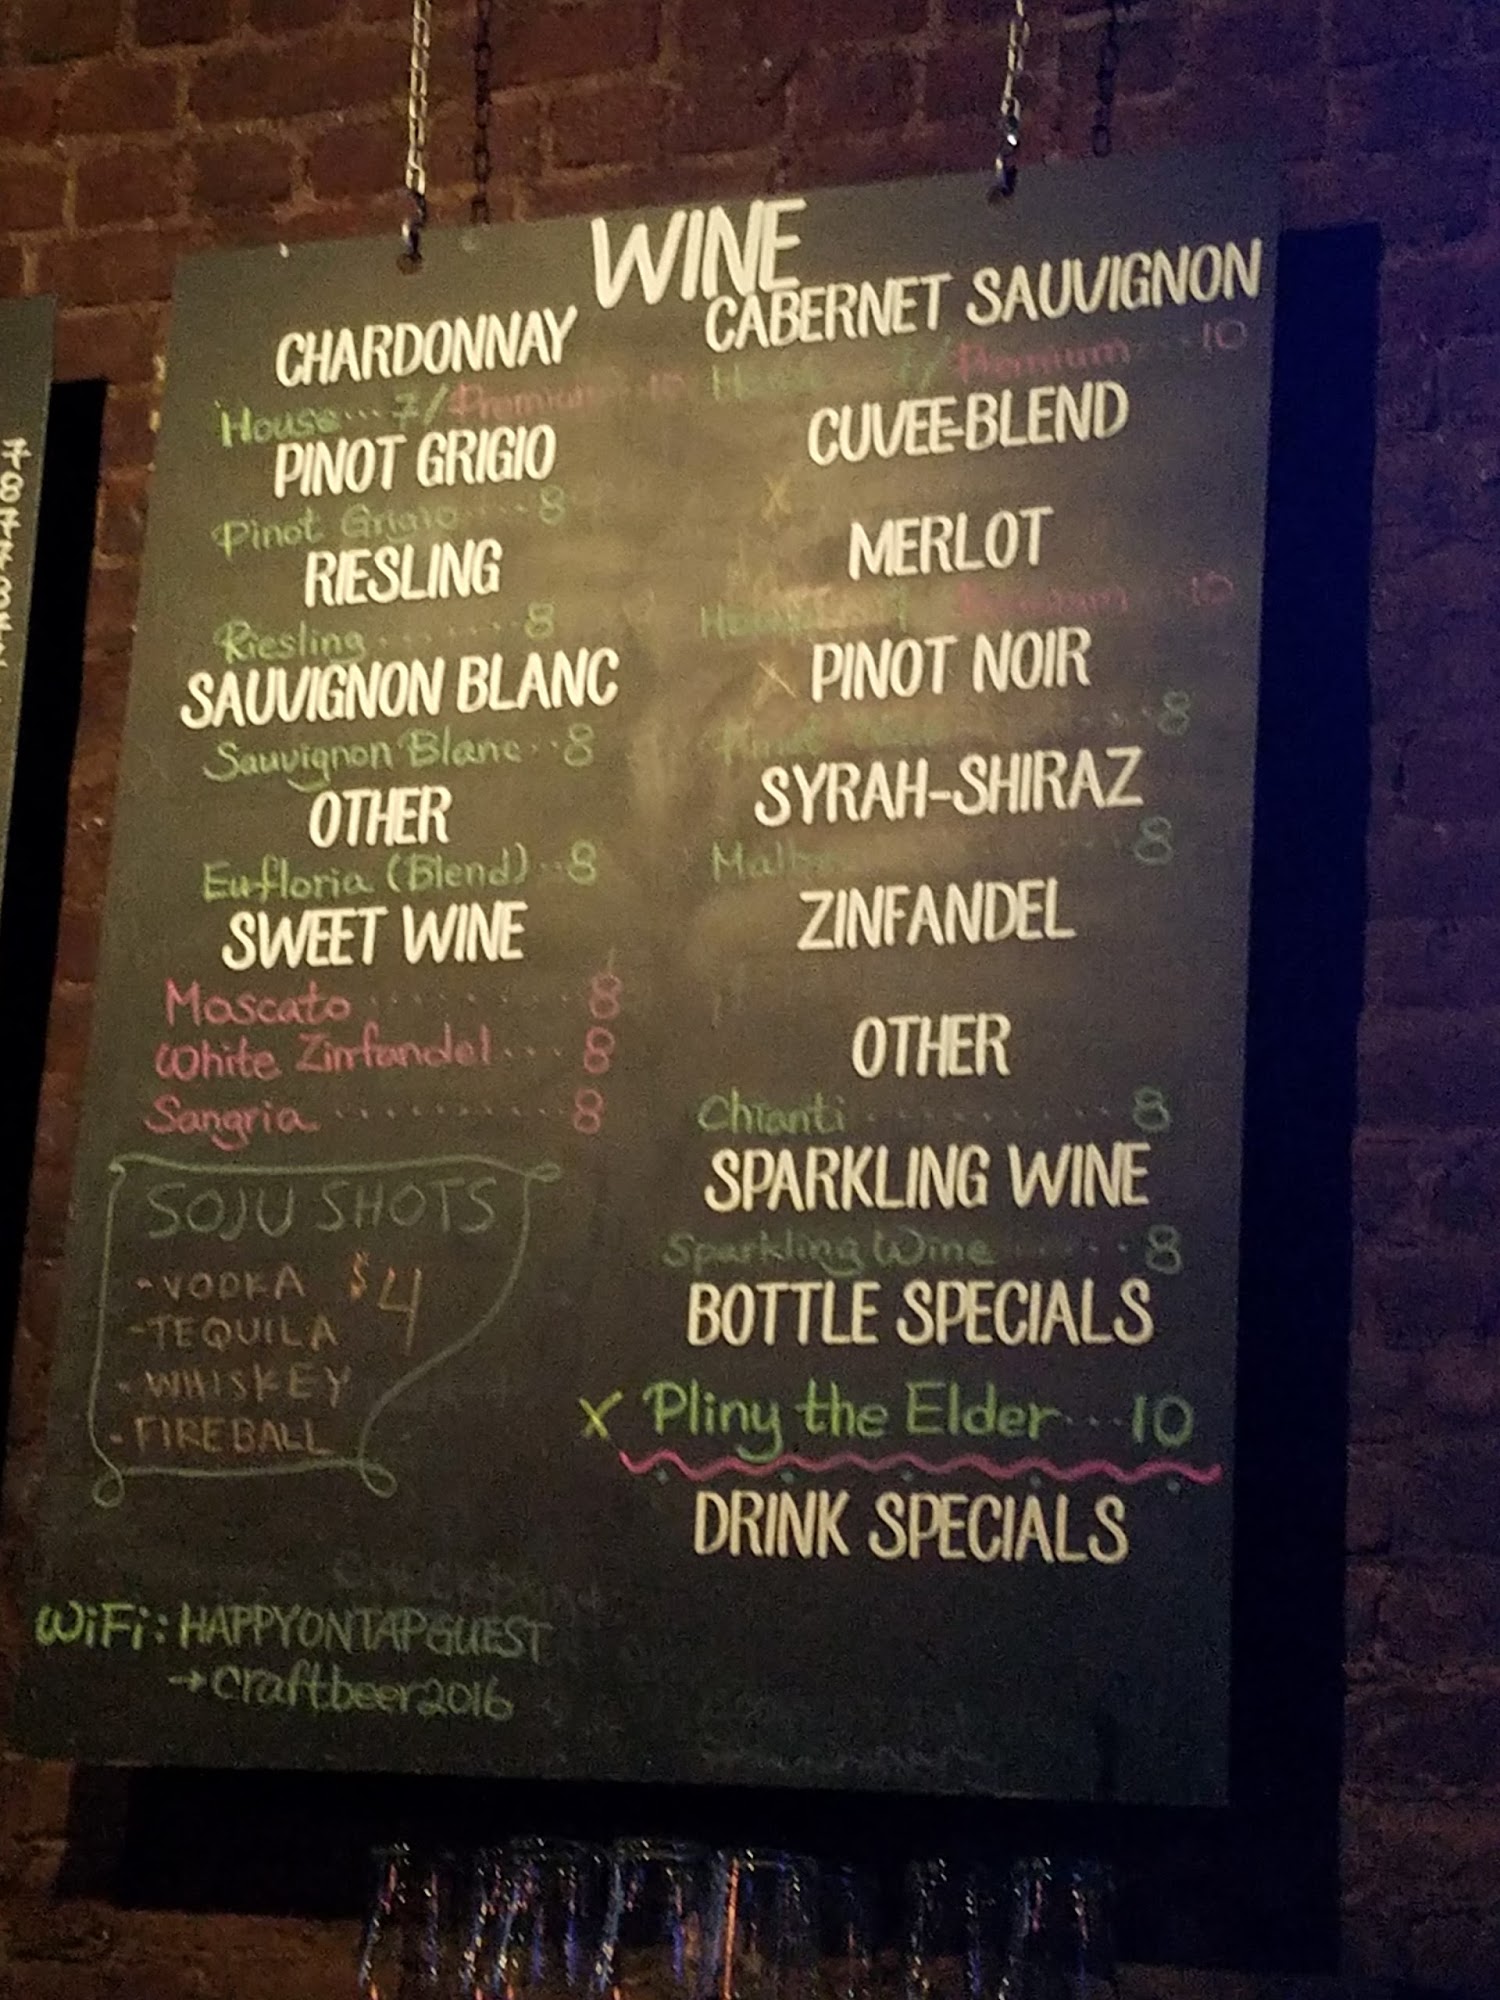 WINE
CHARDONNAY
House...7/Premium...10
PINOT GRIGIO
Pinot Grigio.....8
RIESLING
Riesling.......8
SAUVIGNON BLANC
Sauvignon Blanc..8
OTHER
Eufloria (Blend)..8
SWEET WINE
Moscato.........8
White Zinfandel....8
Sangria...........8
SOJU SHOTS
-VODKA $4
-TEQUILA
-WHISKEY
-FIREBALL
WiFi: HAPPYONTAPGUEST
→craftbeer2016
CABERNET SAUVIGNON
7/Premium...10
CUVEE-BLEND
X
MERLOT
10
PINOT NOIR
8
SYRAH-SHIRAZ
8
ZINFANDEL
OTHER
Chianti...........8
SPARKLING WINE
Sparkling Wine......8
BOTTLE SPECIALS
X Pliny the Elder...10
DRINK SPECIALS